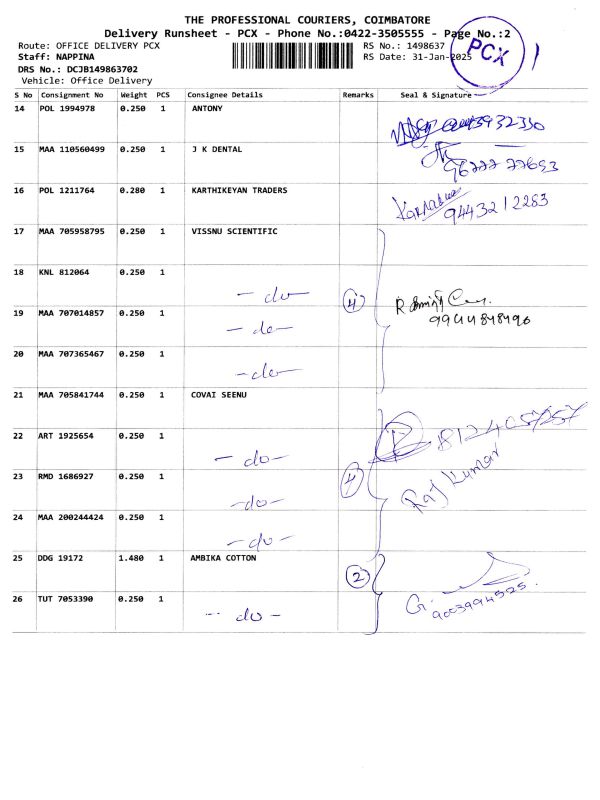 THE PROFESSIONAL COURIERS, COIMBATORE
Delivery Runsheet - PCX - Phone No.:0422-3505555 - Page No.:2
Route: OFFICE DELIVERY PCX RS No.: 1498637
Staff: NAPPINA RS Date: 31-Jan-2025
PCX
DRS No.: DCJB149863702
Vehicle: Office Delivery
S No Consignment No Weight PCS Consignee Details Remarks Seal & Signature
14 POL 1994978 0.250 1 ANTONY
15 MAA 110560499 0.250 1 J K DENTAL
96777 77653
16 POL 1211764 0.280 1 KARTHIKEYAN TRADERS
9443212283
17 MAA 705958795 0.250 1 VISSNU SCIENTIFIC
18 KNL 812064 0.250 1 - do - 4
19 MAA 707014857 0.250 1 - do - 9944848496
20 MAA 707365467 0.250 1 - do -
21 MAA 705841744 0.250 1 COVAI SEENU
22 ART 1925654 0.250 1 - do - 812405757
23 RMD 1686927 0.250 1 - do - 4 Raj Kumar
24 MAA 200244424 0.250 1 - do -
25 DDG 19172 1.480 1 AMBIKA COTTON 2
26 TUT 7053390 0.250 1 - do - G. 9003994525